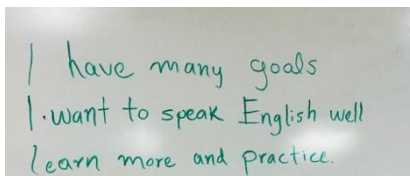 I have many goals
1. want to speak English well
learn more and practice.